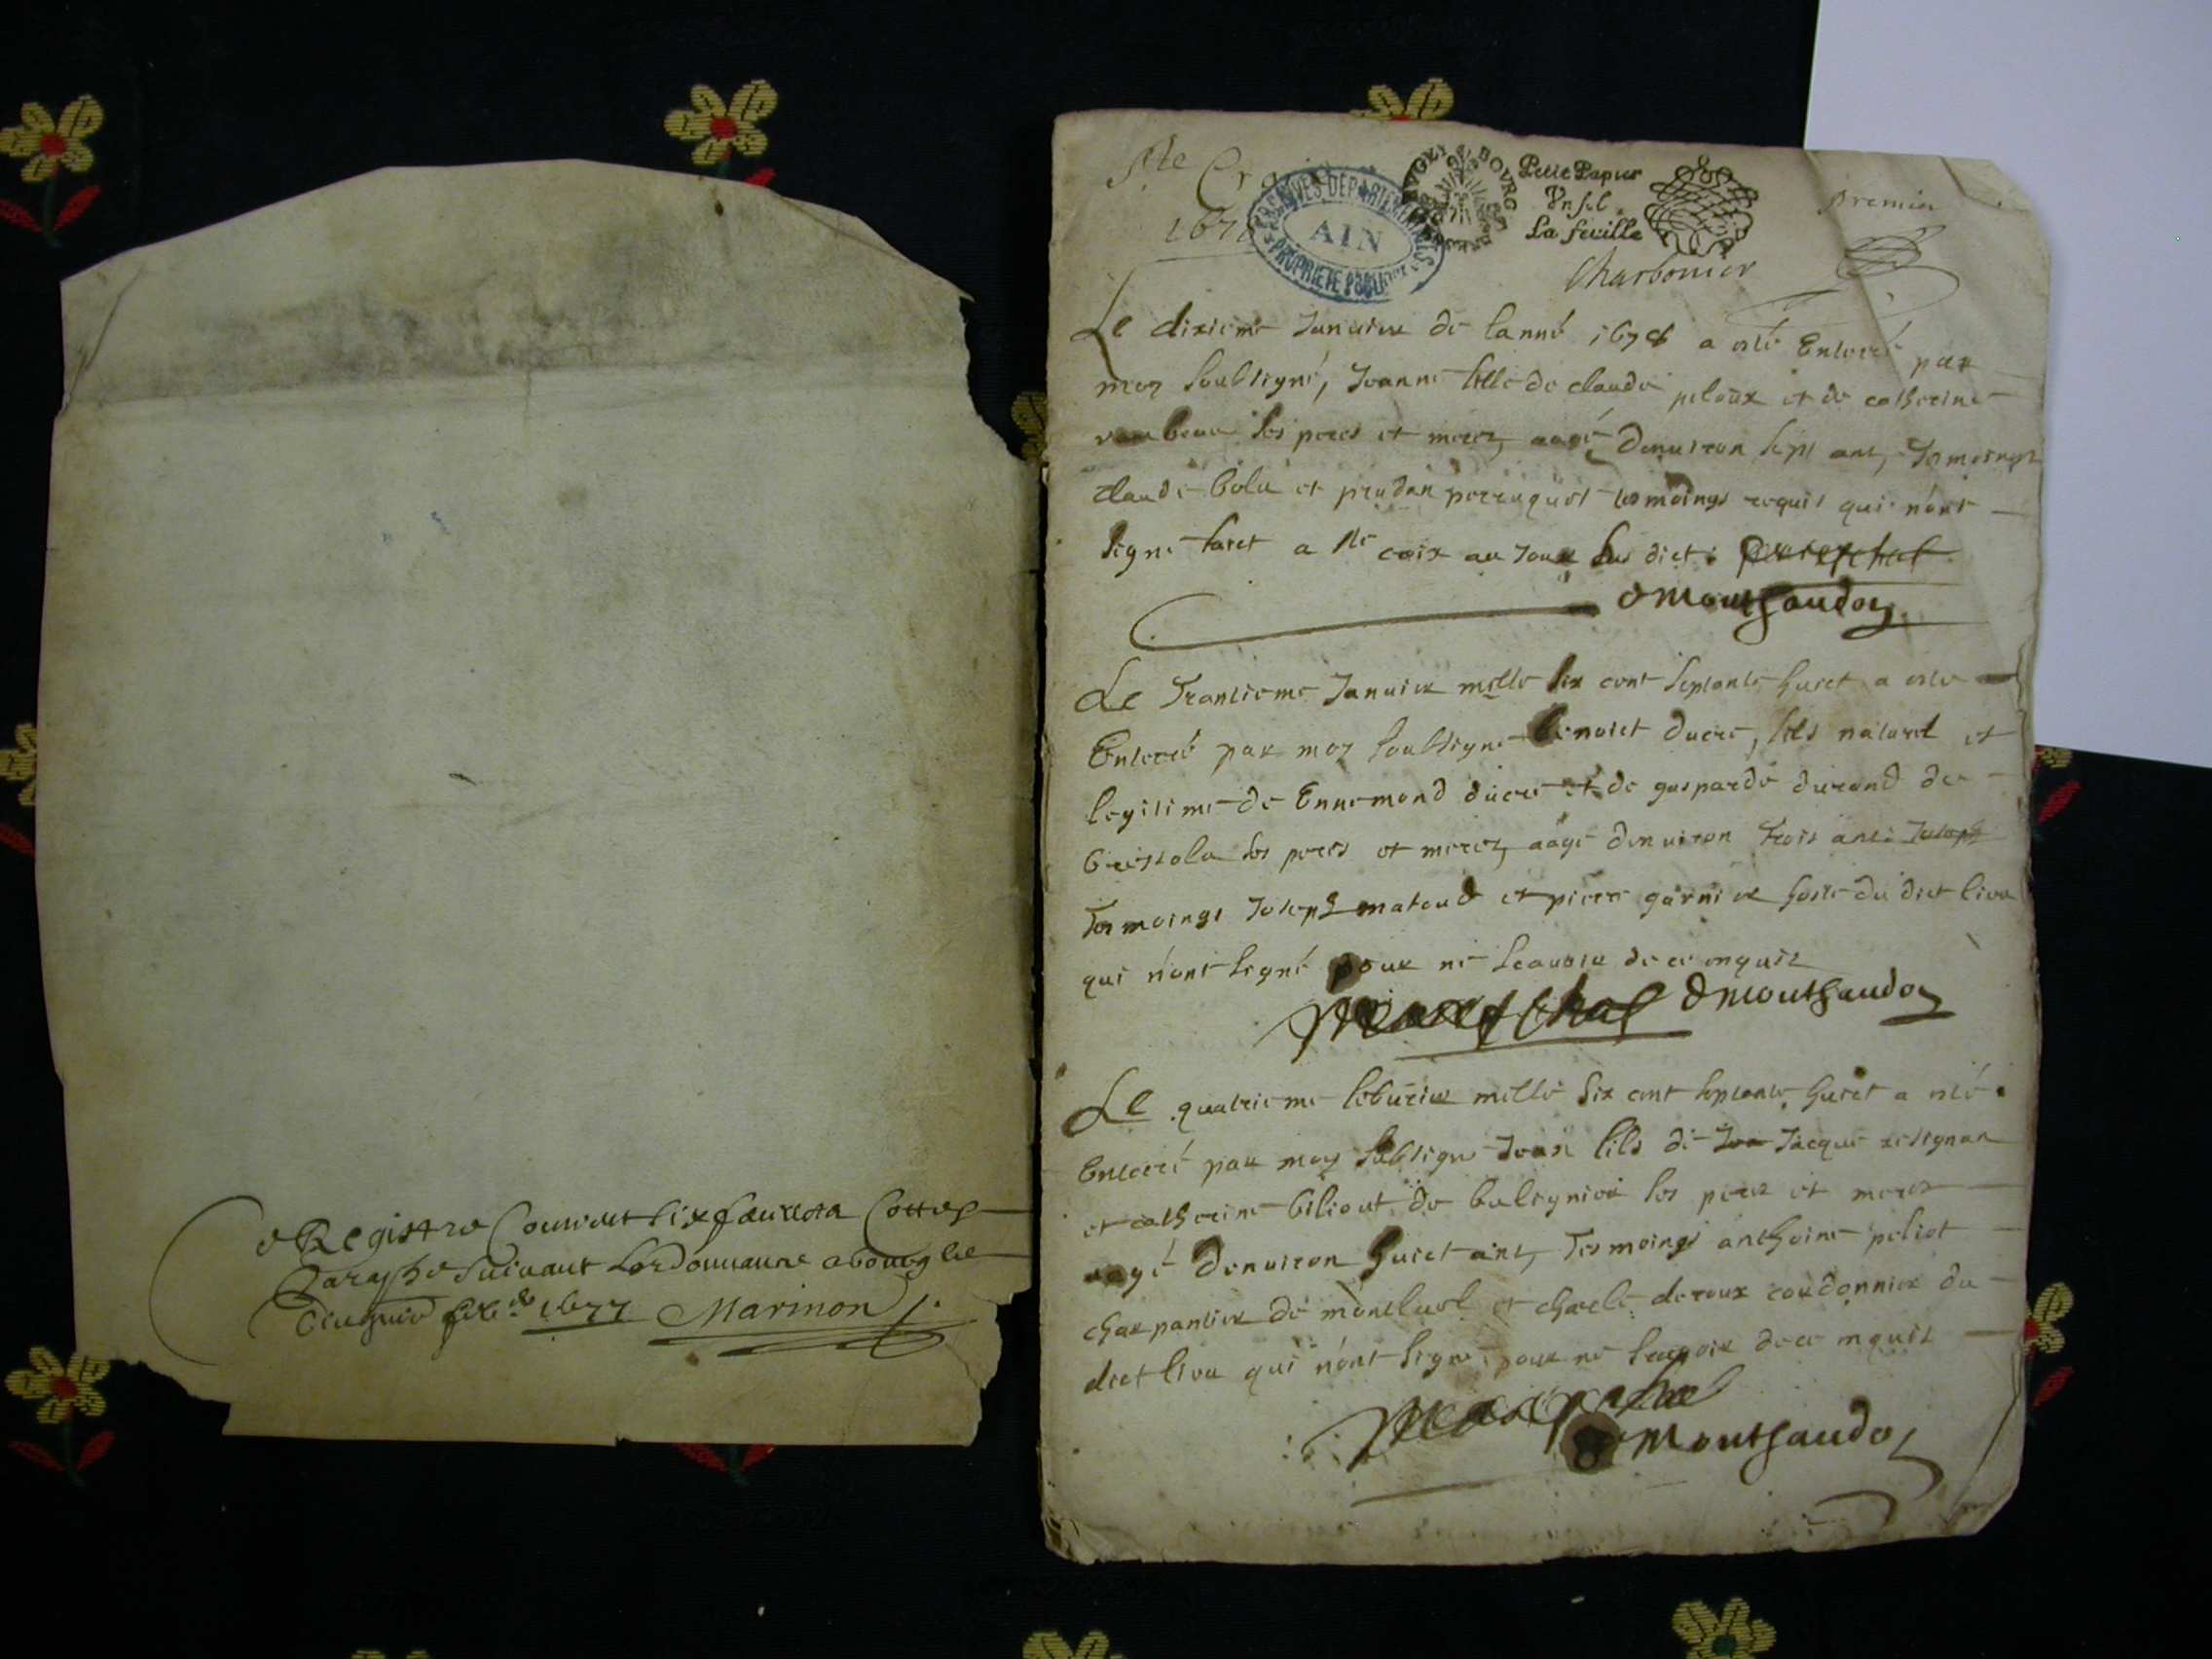 Ce Registre Contient six feuillets Cottés
Paraphé Suivant Lordonnance a bourg le
1677 Marinon
Ste Croix
1678
ARCHIVES DEPARTEMENTALES
AIN
PROPRIETE PUBLIQUE
BUGEY BOURG
Petit Papier
Un sol
La feuille
Charbonier
premier
Le dixieme Januier de lanné 1678 a esté Enterré par
moy soubsigné, Jeanne fille de claude peloux et de catherine
ses peres et meres, aagé denuiron sept ans, Tesmoings
claude et perraquet tesmoings requis qui n'ont
signé faict a Ste croix au jour sus dict:
Montfaudoy
Le Trantieme Januier mille six cent septante huict a esté
Enterré par moy soubsigné benoict ducre, fils naturel et
legitime de Ennemond ducre et de gasparde durand de
bressola ses peres et meres, aagé denuiron trois ans: Joseph
Tesmoings Joseph mataud et pierre garnier hoste du dict lieu
qui n'ont signé pour ne scauoir de ce enquis
Mareschal Montfaudoy
Le quatrieme feburier mille six cent septante huict a esté
Enterré par moy subsigné Jean fils de Jacque
et catherine biliout de balignieu ses peres et meres
aagé denuiron huict ans, Tesmoings anthoine peliot
charpantier de monluel et charle deroux cordonnier du
dict lieu qui n'ont signé pour ne scauoir de ce enquis
Mareschal
Montfaudoy